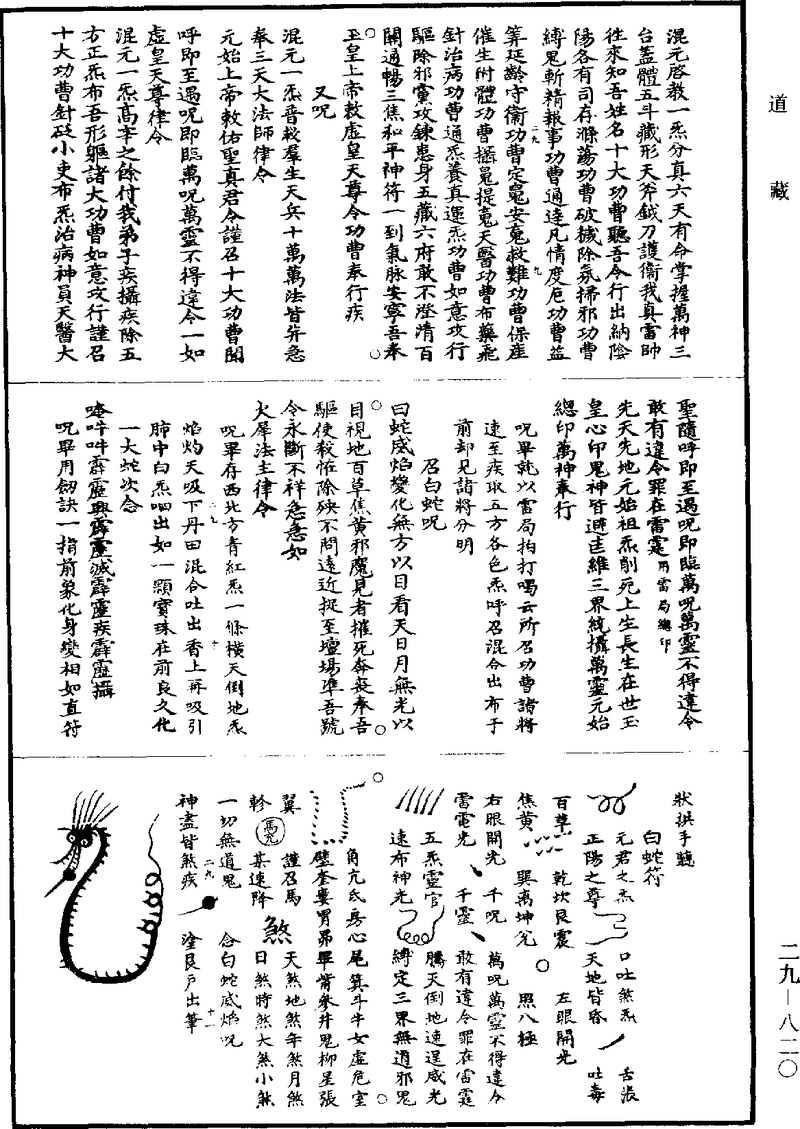 道藏
混元啓教一炁分真六天有命掌握萬神三
台蓋體五斗藏形天斧鉞刀護衛我真雷帥
徃來知吾姓名十大功曹聽吾令行出納陰
陽各有司存滌蕩功曹破穢除氛掃邪功曹
縛鬼斬精報事功曹通達凡情度厄功曹益
算延齡守衛功曹定䰟安䰟救難功曹保產
催生附體功曹攝䰟提䰟天醫功曹布藥飛
針治病功曹通炁養真運炁功曹如意攻行
驅除邪黨攻鍊患身五藏六府敢不澄清百
關通暢三焦和平神符一到氣脉安寧吾奉
玉皇上帝敕虛皇天尊令功曹奉行疾
又呪
混元一炁普救羣生天兵十萬萬法皆弁急
奉三天大法師律令
元始上帝敕佑聖真君令謹召十大功曹聞
呼即至遇呪即臨萬呪萬靈不得違令一如
虛皇天尊律令
混元一炁髙宰之餘付我弟子疾攝疾除五
方正炁布吾形軀諸大功曹如意攻行謹召
十大功曹針砭小吏布炁治病神員天醫大
聖隨呼即至遇呪即臨萬呪萬靈不得違令
敢有違令罪在雷霆用雷局總印
先天先地元始祖炁削死上生長生在世玉
皇心印鬼神皆避主維三界統攝萬靈元始
總印萬神奉行
呪畢就以雷局拍打喝云所召功曹諸將
速至疾取五方各色炁呼召混合出布于
前却見諸將分明
召白蛇呪
白蛇威焰變化無方以目看天日月無光以
目視地百草焦黃邪魔見者摧死奔衰奉吾
驅使殺惟除殃不問遠近捉至壇場準吾號
令永斷不祥急急如
火犀法主律令
呪畢存西北方青紅炁一條橫天倒地炁
焰灼天吸下丹田混合吐出香上再吸引
肺中白炁呬出如一顆寶珠在前良久化
一大蛇次念
唵吽吽霹靂興霹靂滅霹靂疾霹靂攝
呪畢用劒訣一指前象化身變相如直符
狀拱手聽
白蛇符
元君之炁 口吐煞炁 舌漲
正陽之尊 天地皆昏 吐毒
百草 乾坎艮震 左眼開光
焦黃 巽离坤兌 照八極
右眼開光 千呪 萬呪萬靈不得違令
雷電光 千靈 敢有違令罪在雷霆
五炁靈官 騰天倒地速逞威光
速布神光 縛定三界無道邪鬼
角亢氐房心尾箕斗牛女虛危室
壁奎婁胃昴畢觜參井鬼柳星張
翼 謹召馬 天煞地煞年煞月煞
軫 馬充 某速降 煞 日煞時煞大煞小煞
一切無道鬼 念白蛇威焰呪
神盡皆煞疾 塗艮戸出筆
二九－八二〇